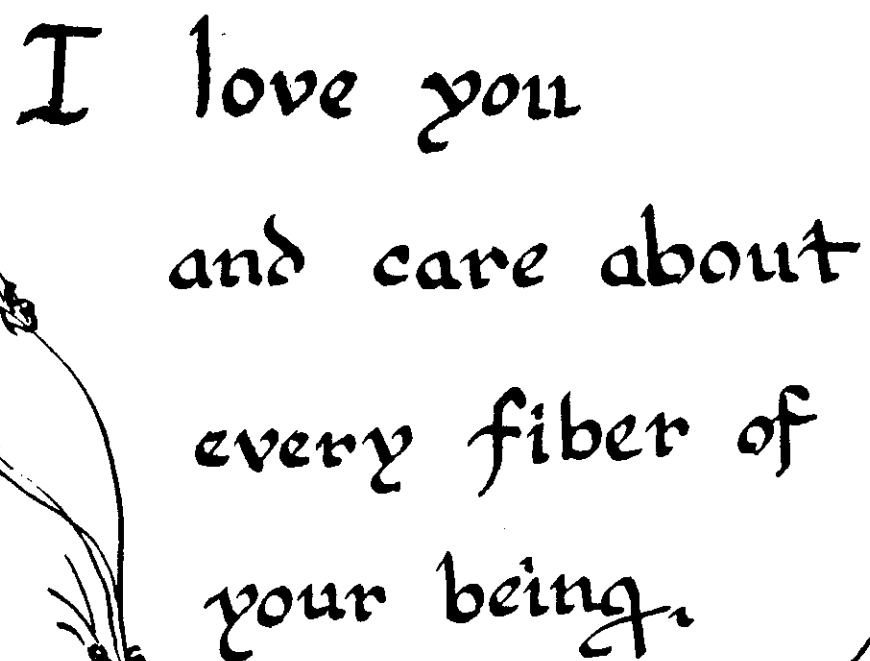 I love you
and care about
every fiber of
your being.